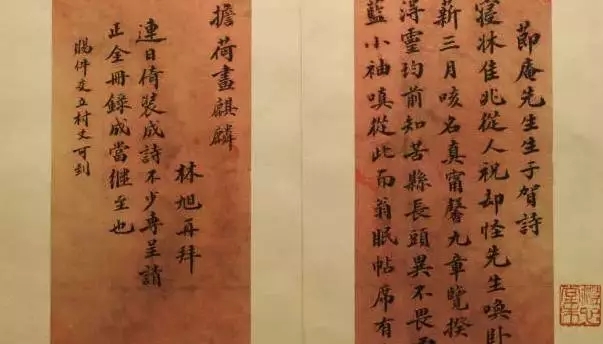 節庵先生生子賀詩
寢牀佳兆從人祝却怪先生喚卧
薪三月咳名真甯馨九章覽揆
得靈均前知苦縣長頭異不畏
藍小袖嗔從此而翁眠帖席有
擔荷畫麒麟
林旭再拜
連日倚裝成詩不少專呈請
正全冊錄成當繼至也
賜件交立村丈可到